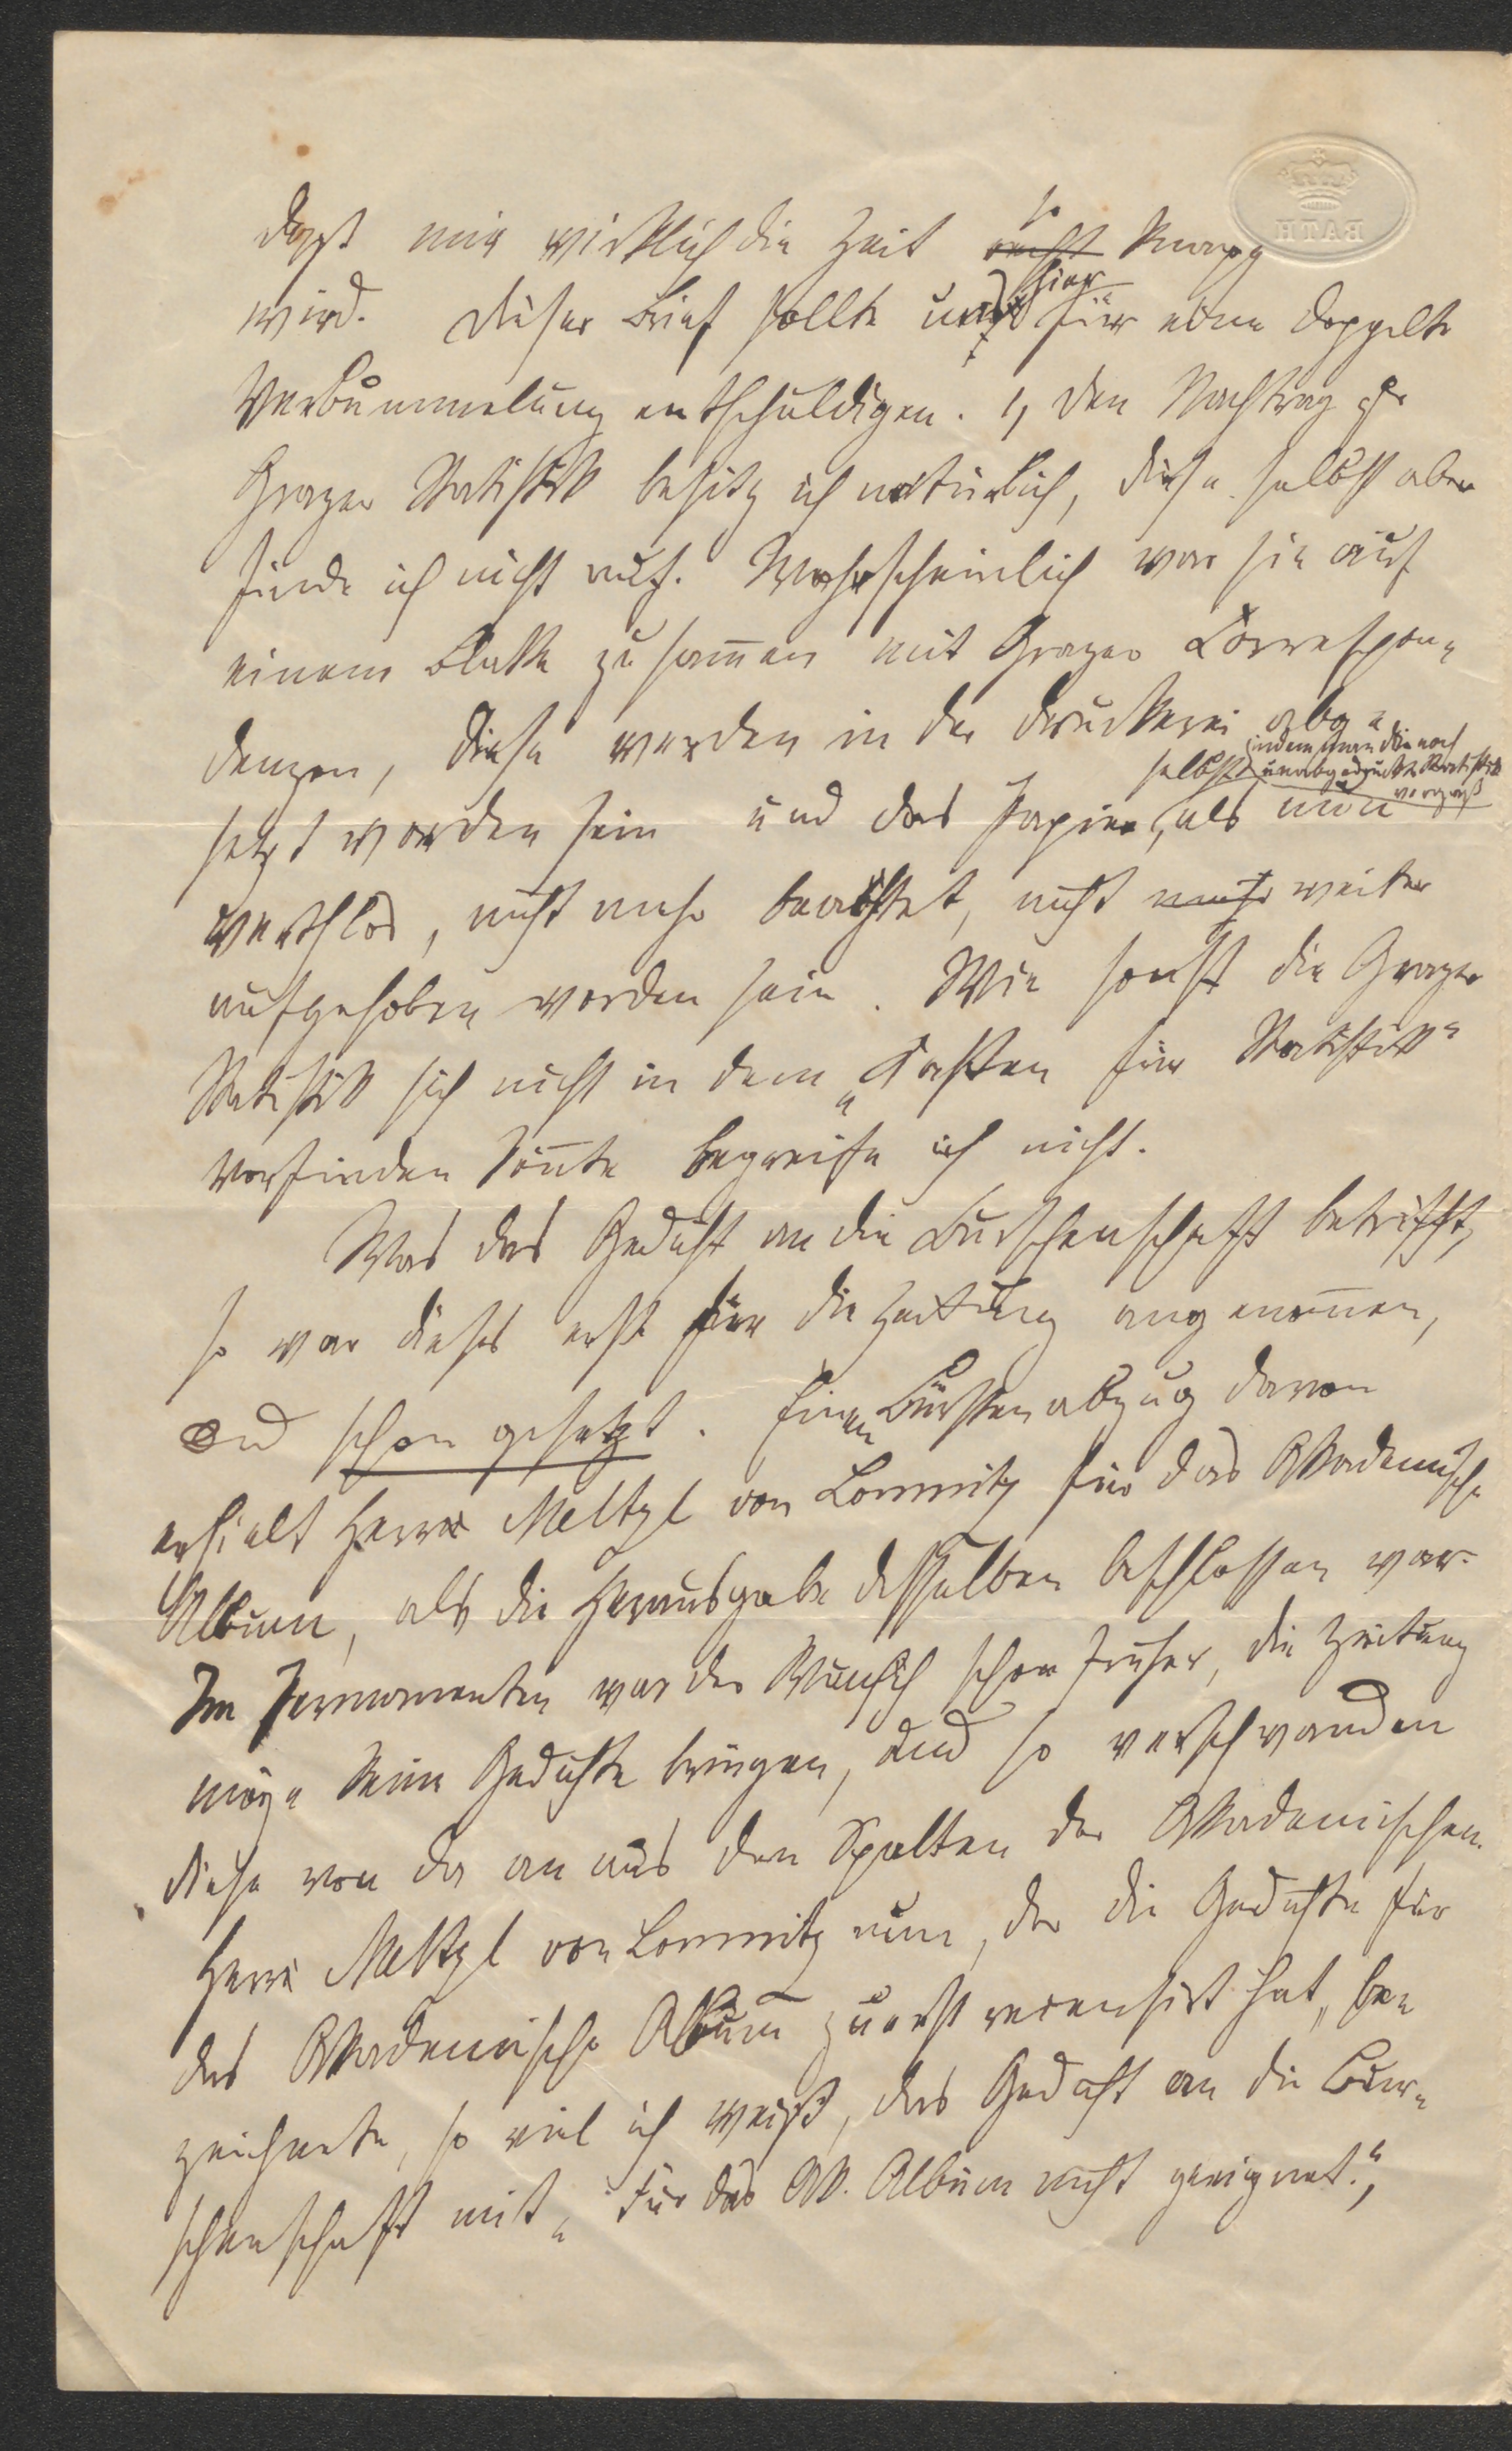 BATH
daß mir wirklich die Zeit recht so knapp
wird. Dieser Brief sollte uns hier für eine doppelte
Verbummelung entschuldigen. 1, den Nachtrag zur
Grazer Statistik besitz ich natürlich, diese selbst aber
finde ich nicht auf. Wahrscheinlich war sie auf
einem Blatte zusam̄en mit Grazer Correspon-
denzen, diese werden in der Druckerei abge-
setzt worden sein und das Papier selbst, als nun indem man die noch unabgedruckte Statistik vergaß
werthlos, nicht mehr beachtet, nicht mehr weiter
aufgehoben worden sein. Wie sonst die Grazer
Statistik sich nicht in dem „Kasten für Statistik“
vorfinden kön̄te begreife ich nicht.
Was das Gedicht an die Burschenschaft betrifft,
so war dieses erst für die Zeitung angenom̄en,
und schon gesetzt. Einen Bürstenabzug davon
erhielt Herr Meltzl von Lomnitz für das Akademische
Album, als die Herausgabe desselben beschlossen war.
Im Permanenten war der Wunsch schon früher, die Zeitung
möge keine Gedichte bringen, und so verschwanden
diese von da an aus den Spalten der Akademischen.
Herr Meltzl von Lomnitz nun, der die Gedichte für
das Akademische Album zuerst recensirt hat, be-
zeichnete, so viel ich weiß, das Gedicht an die Bur-
schenschaft mit „für das Ak. Album nicht geeignet.“,